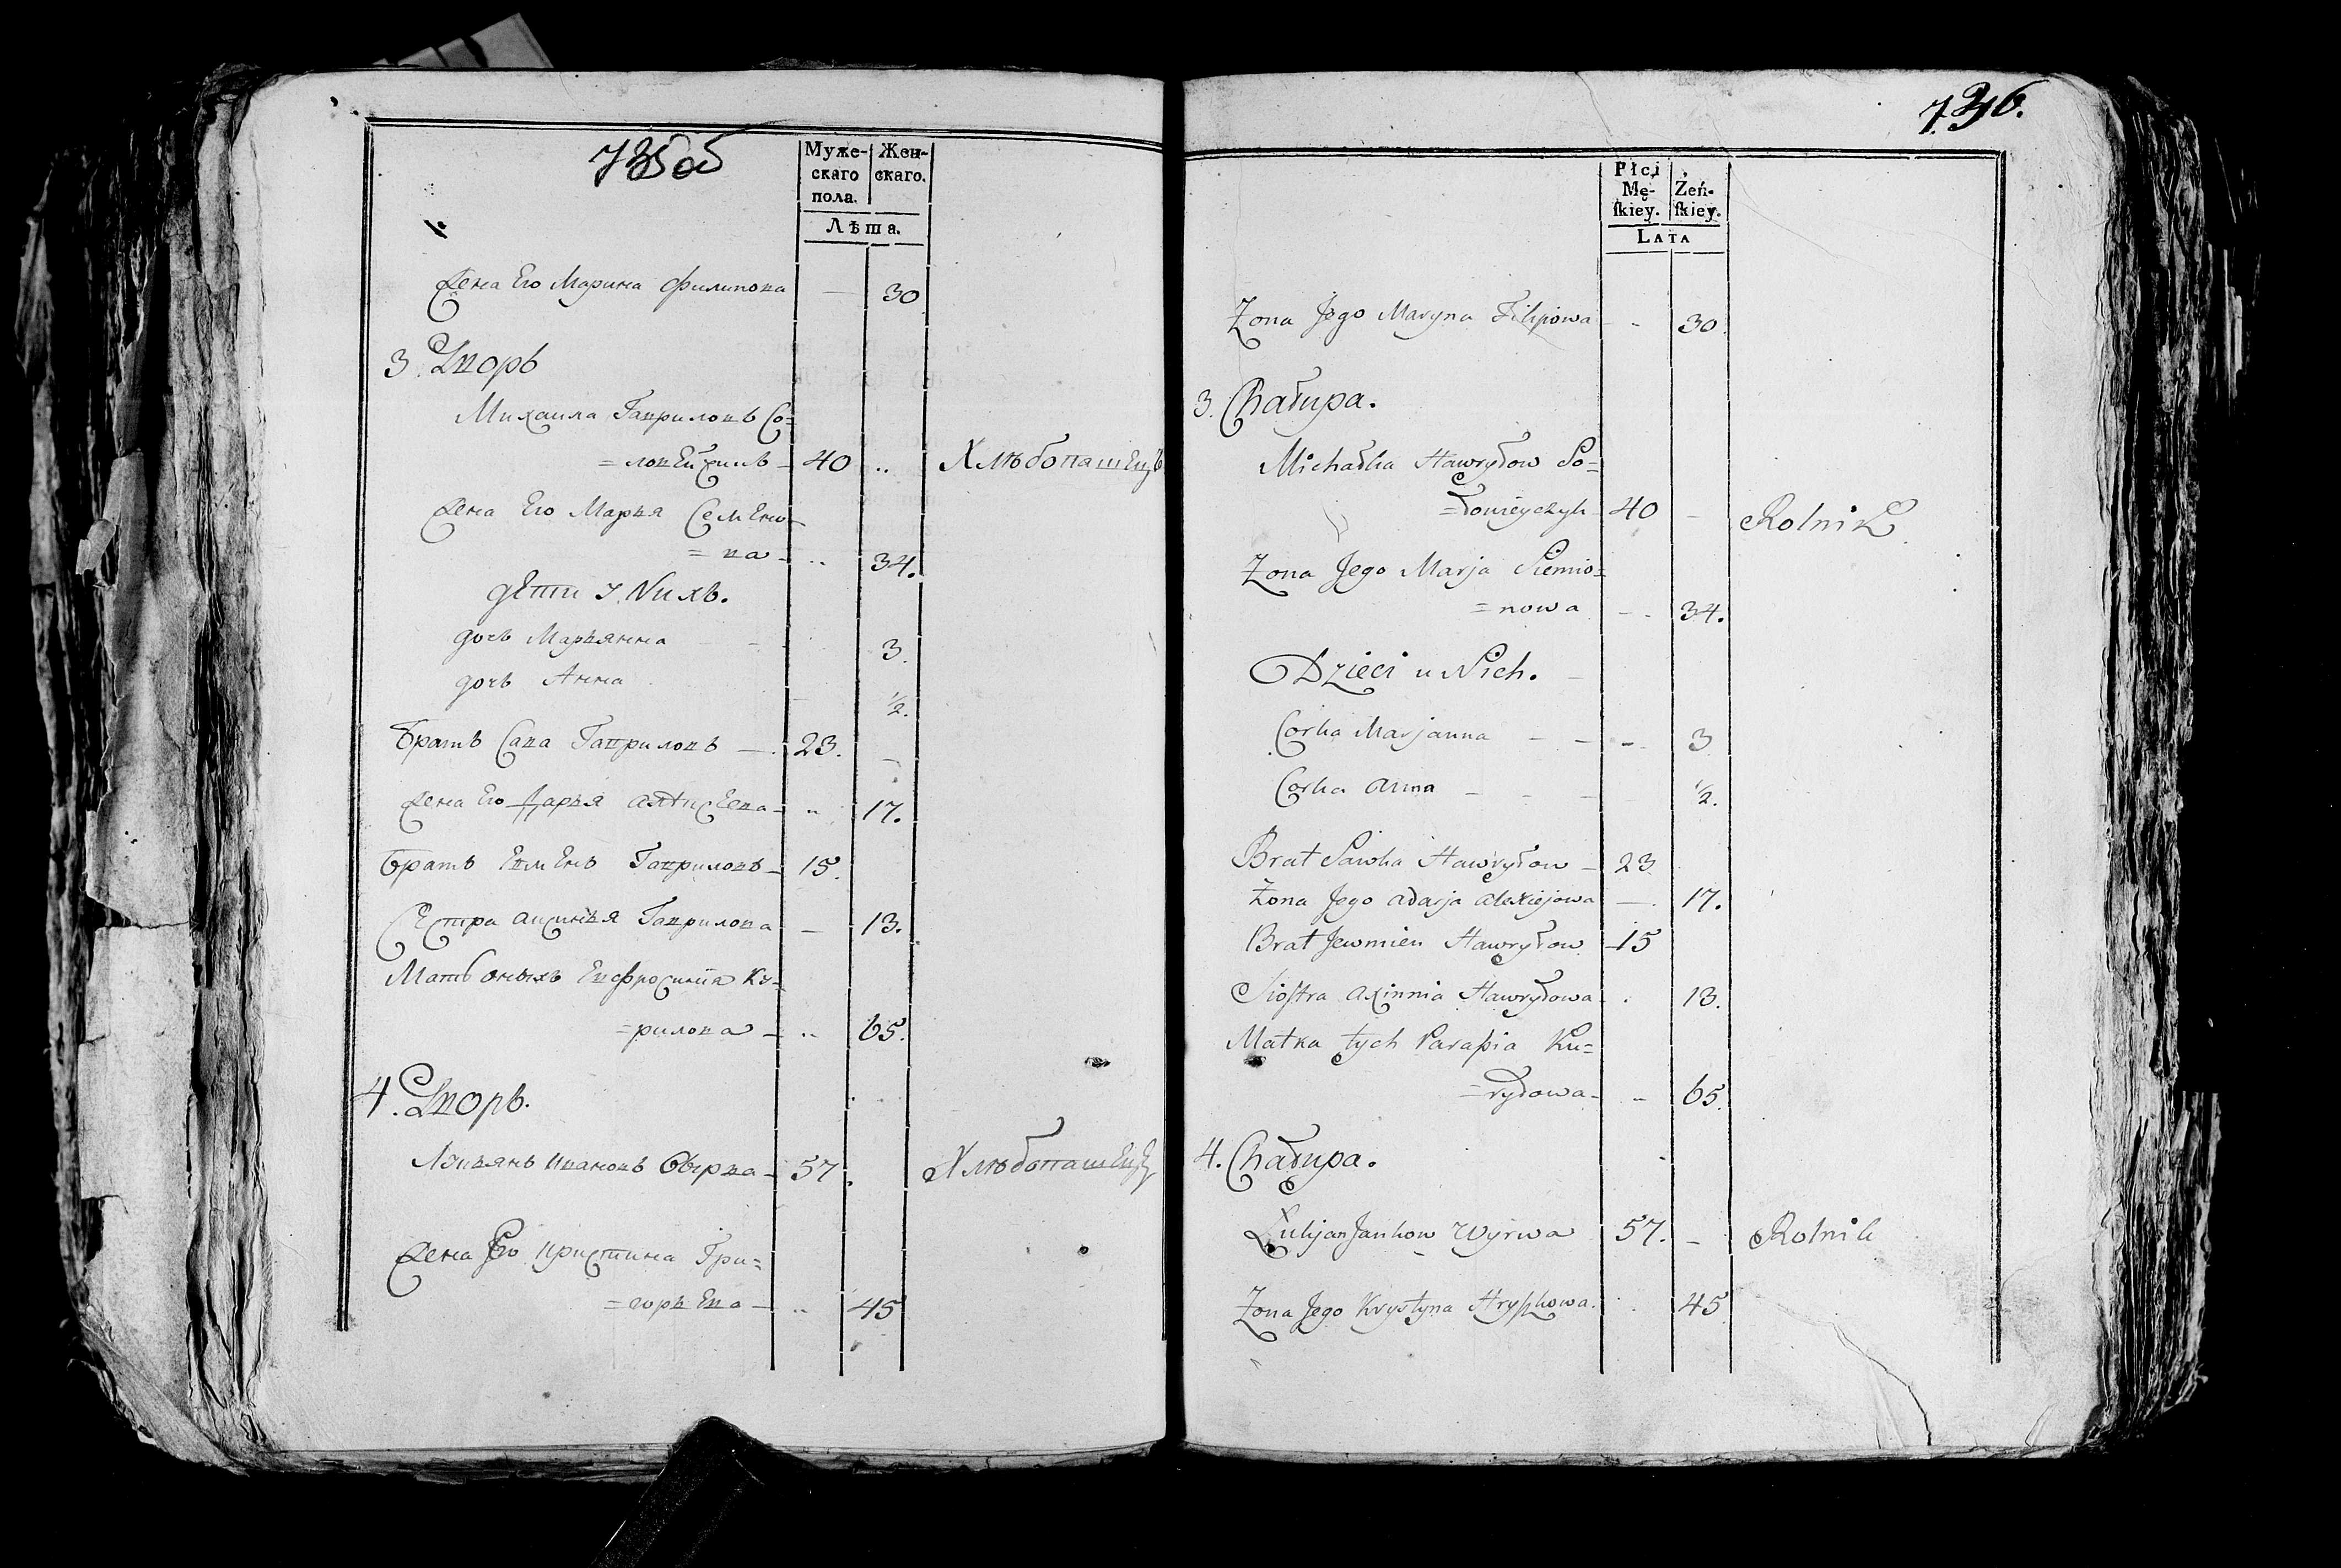 735 об
Муже-
скаго
пола.
Жен-
скаго.
Лѣта.
Жена Его Марина Филипова — 30
3. Дворъ
Михаила Гавриловъ Со=
=ловейчикъ — 40 .. Хлѣбопашецъ
Жена Его Марья Семено=
=ва — .. 34.
дети У Nихъ.
дочь Марьянна — 3.
дочь Анна 1/2.
Братъ Сава Гавриловъ — 23.
Жена Его Дарья Алѣксеева — .. 17.
Братъ Евменъ Гавриловъ — 15.
Сестра Аксинья Гаврилова — 13.
Мать оныхъ Евфросиния Ку=
=рилова — .. 65.
4. Дворъ.
Лукьянъ Ивановъ Вырва — 57. Хлѣбопашецъ
Жена Его Кристина Гри=
=горьева — .. 45
736.
Płci
Mę-
ſkiey.
Żeń-
ſkiey.
LATA
Zona Jego Maryna Filipowa - 30.
3. Chałupa.
Michałka Hawryłow So=
=łowieyczyk 40 – Rolnik
Zona Jego Marja Siemio=
=nowa - 34.
Dzieci u Nich. –
Corka Marjanna – – – 3
Corka Anna – – – 1/2.
Brat Sawka Hawryłow – 23
Zona Jego Adarja Alexiejowa — 17.
Brat Jewmien Hawryłow – 15
Sioſtra Axinnia Hawryłowa - 13.
Matka tych Parasia Ku=
=ryłowa - 65.
4. Chałupa.
Łukjan Jankow Wyrwa 57. – Rolnik
Zona Jego Krystyna Hryſzkowa. 45